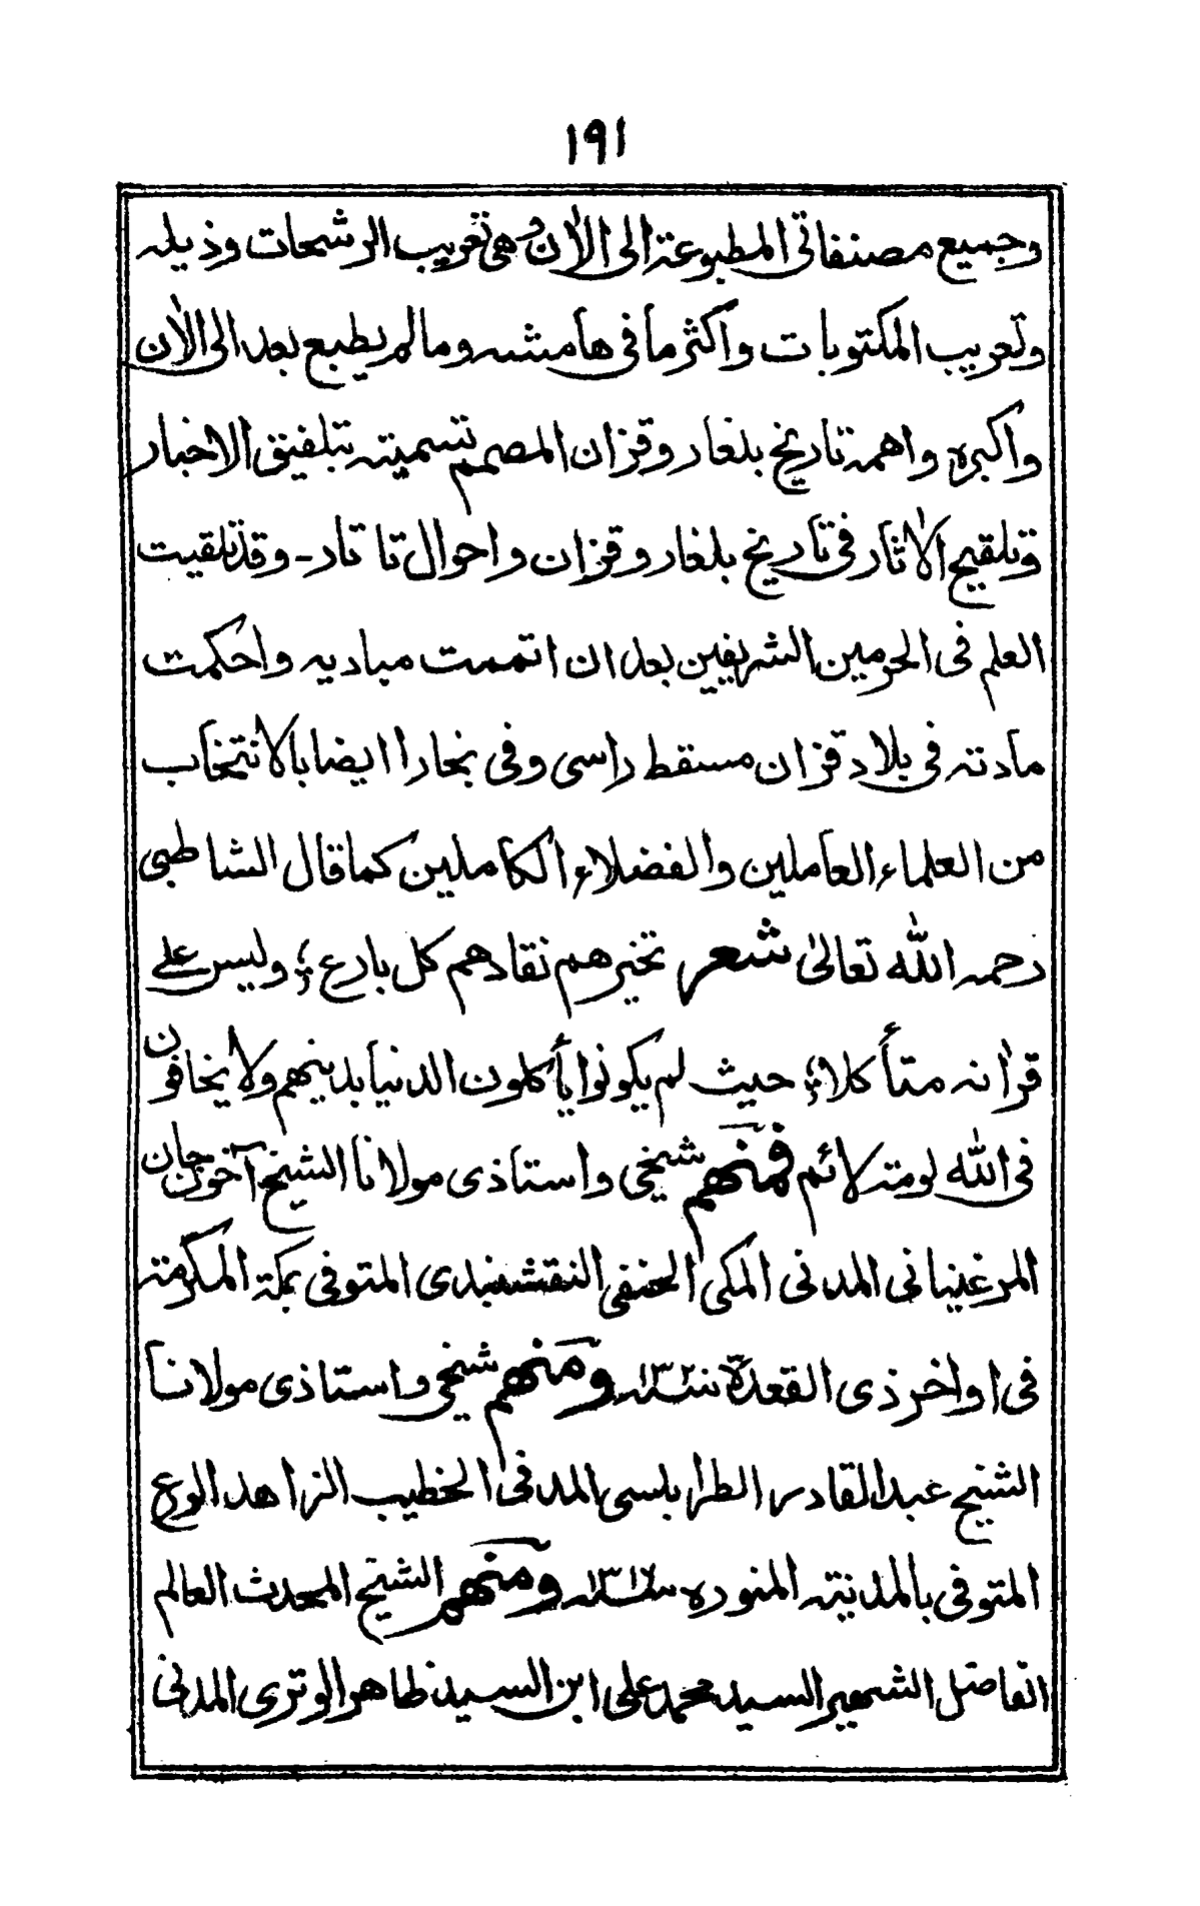 ١٩١
وجميع مصنفاتى المطبوعة الى الآن وهى تعريب الرشحات وذيله
وتعريب المكتوبات واكثر ما فى هامشه ومالم يطبع بعد الى الآن
واكبره واهمه تاريخ بلغار وقزان المصمم تسميته بتلفيق الاخبار
وتلقيح الآثار فى تاريخ بلغار وقزان واحوال تاتار - وقد تلقيت
العلم فى الحرمين الشريفين بعد ان اتممت مباديه واحكمت
مادته فى بلاد قزان مسقط راسى وفى بخارا ايضا بالانتخاب
من العلماء العاملين والفضلاء الكاملين كما قال الشاطبى
رحمه الله تعالىٰ شعر تخيرهم نقادهم كل بارع ؛ وليس على
قرآنه متأكلا؛ حيث لم يكونوا يأكلون الدنيا بدينهم ولا يخافون
فى الله لومة لائم فمنهم شيخى واستاذى مولانا الشيخ آخون جان
المرغينانى المدنى المكى الحنفى النقشبندى المتوفى بمكة المكرمة
فى اواخر ذى القعدة سنه ومنهم شيخى واستاذى مولانا
الشيخ عبد القادر الطرابلسى المدنى الخطيب الزاهد الورع
المتوفى بالمدينة المنوره سنه ومنهم الشيخ المحدث العالم
الفاضل الشهير السيد محمد على ابن السيد ظاهر الوترى المدنى